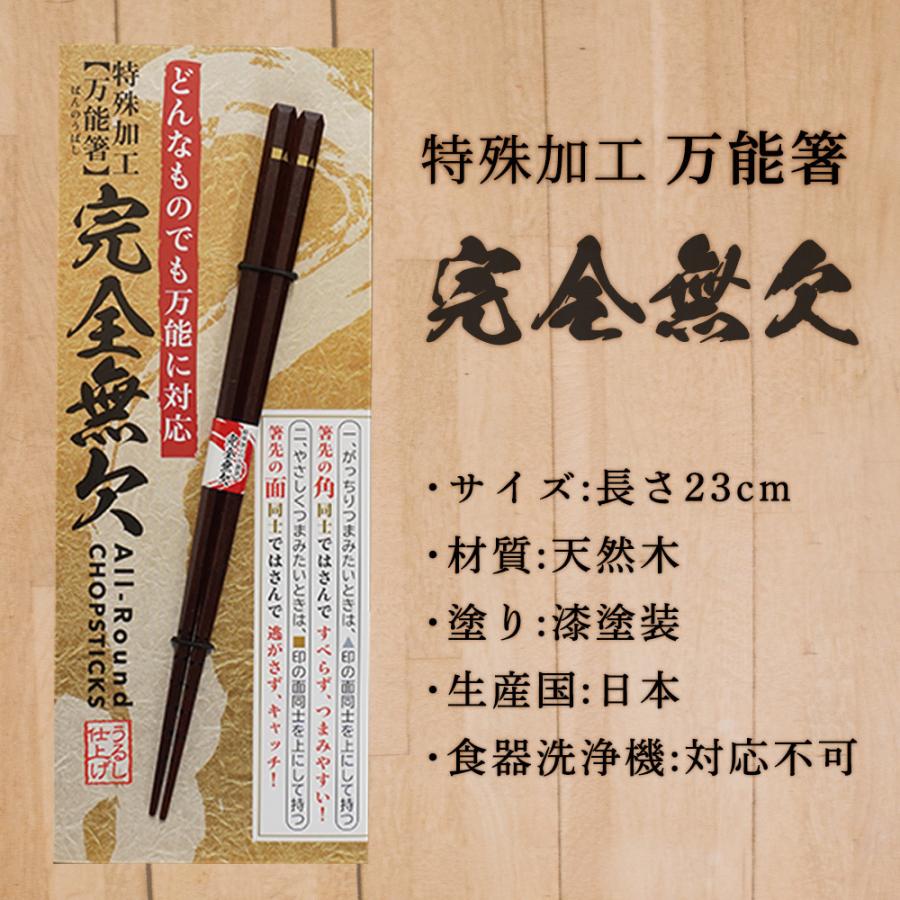 特殊加工
【万能箸】
ばんのうばし
完全無欠
All-Round
CHOPSTICKS
うるし
仕上げ
どんなものでも万能に対応
完全無欠
一、がっちりつまみたいときは、▲印の面同士を上にして持つ
箸先の角同士ではさんで すべらず、つまみやすい！
二、やさしくつまみたいときは、■印の面同士を上にして持つ
箸先の面同士ではさんで 逃がさず、キャッチ！
特殊加工 万能箸
完全無欠
・サイズ:長さ23cm
・材質:天然木
・塗り:漆塗装
・生産国:日本
・食器洗浄機:対応不可